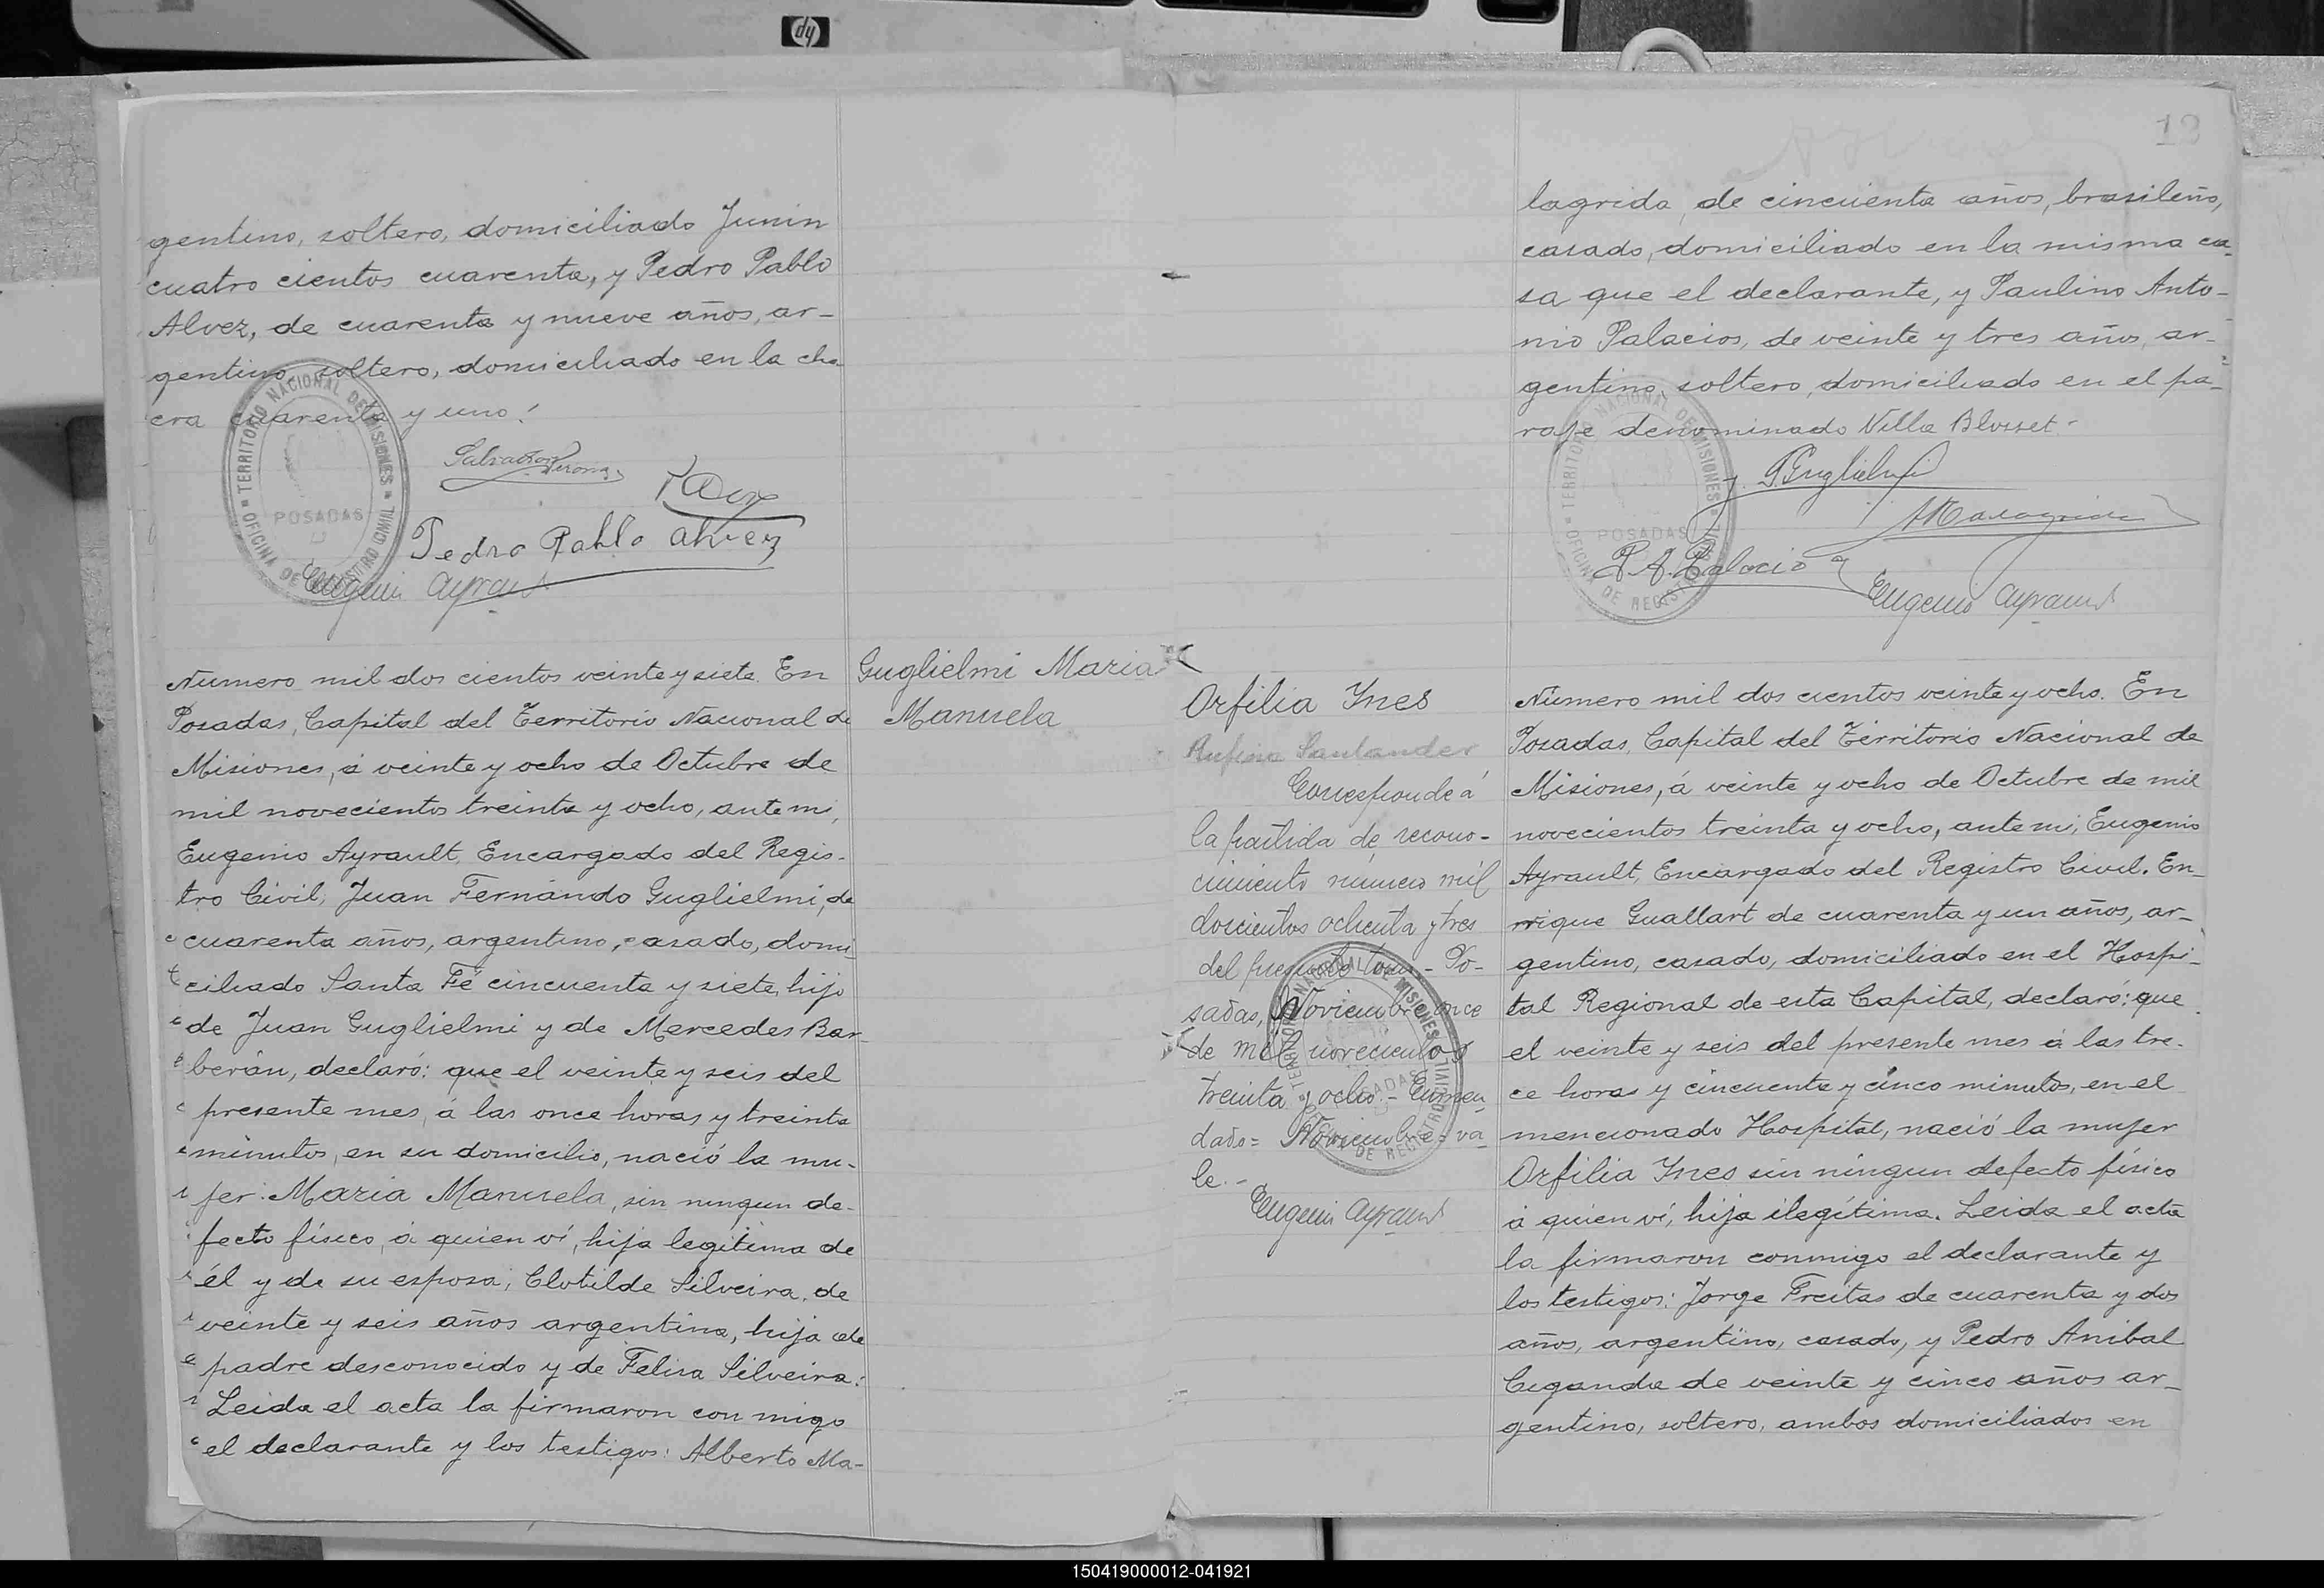 hp
gentino, soltero, domiciliado Junin
cuatro cientos cuarenta, y Pedro Pablo
Alvez, de cuarenta y nueve años, ar-
gentino, soltero, domiciliado en la cha-
cra cuarenta y uno.
TERRITORIO NACIONAL DE MISIONES
POSADAS
OFICINA DE REGISTRO CIVIL
Pedro Pablo Alvez
Eugenio Ayrault
Número mil dos cientos veinte y siete. En
Posadas, Capital del Territorio Nacional de
Misiones, á veinte y ocho de Octubre de
mil novecientos treinta y ocho, ante mi,
Eugenio Ayrault, Encargado del Regis-
tro Civil, Juan Fernándo Guglielmi, de
cuarenta años, argentino, casado, domi
ciliado Santa Fé cincuenta y siete, hijo
de Juan Guglielmi y de Mercedes Bar-
berán, declaró: que el veinte y seis del
presente mes, á las once horas y treinta
minutos, en su domicilio, nació la mu-
jer: Maria Manuela, sin ningun de-
fecto físico, á quien ví, hija legítima de
él y de su esposa, Clotilde Silveira, de
veinte y seis años argentina, hija de
padre desconocido y de Felisa Silveira.
Leida el acta la firmaron con migo
el declarante y los testigos: Alberto Ma-
Guglielmi Maria
Manuela
13
lagrida, de cincuenta años, brasileño,
casado, domiciliado en la misma ca-
sa que el declarante, y Paulino Anto-
nio Palacios, de veinte y tres años, ar-
gentino, soltero, domiciliado en el pa-
raje denominado Villa Blosset.-
TERRITORIO NACIONAL DE MISIONES
POSADAS
OFICINA DE REGISTRO CIVIL
J. Guglielmi
AMalagrida
P. A. Palacio
Eugenio Ayrault
Orfilia Ynes
Rufina Santander
Corresponde á
la partida de recono-
cimiento número mil
doscientos ochenta y tres
del presente tomo.- Po-
sadas, Noviembre once
de mil novecientos
treinta y ocho.- Enmen-
dado= Noviembre= va
le.-
Eugenio Ayrault
TERRITORIO NACIONAL DE MISIONES
POSADAS
OFICINA DE REGISTRO CIVIL
Número mil dos cientos veinte y ocho. En
Posadas, Capital del Territorio Nacional de
Misiones, á veinte y ocho de Octubre de mil
novecientos treinta y ocho, ante mi, Eugenio
Ayrault, Encargado del Registro Civil. En-
rrique Guallart de cuarenta y un años, ar-
gentino, casado, domiciliado en el Hospi-
tal Regional de esta Capital, declaró: que
el veinte y seis del presente mes á las tre-
ce horas y cincuenta y cinco minutos, en el
mencionado Hospital, nació la mujer
Orfilia Ynes sin ningun defecto físico
á quien ví, hija ilegítima. Leida el acta
la firmaron conmigo el declarante y
los testigos: Jorge Freitas de cuarenta y dos
años, argentino, casado, y Pedro Anibal
Ceganda de veinte y cinco años ar-
gentino, soltero, ambos domiciliados en
150419000012-041921